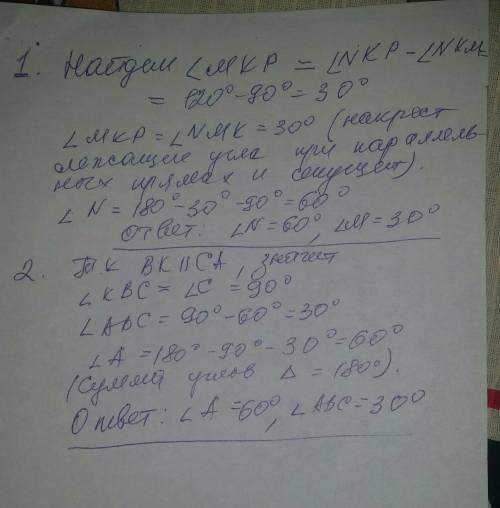 1. Найдем ∠MKP = ∠NKP - ∠NKM
= 120° - 90° = 30°
∠MKP = ∠NMK = 30° (накрест
лежащие угла при параллель-
ных прямах и секущей).
∠N = 180° - 30° - 90° = 60°
Ответ: ∠N = 60°, ∠M = 30°
2. Т.к BK || CA, значит
∠KBC = ∠C = 90°
∠ABC = 90° - 60° = 30°
∠A = 180° - 90° - 30° = 60°
(Сумма углов Δ = 180°).
Ответ: ∠A = 60°, ∠ABC = 30°